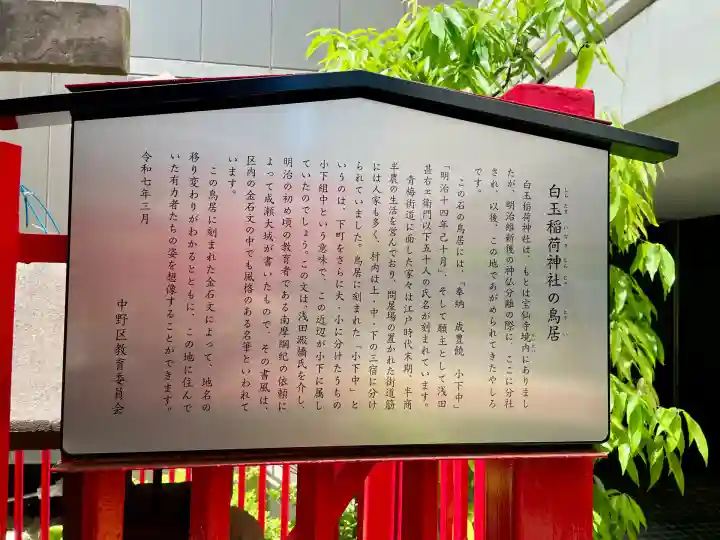 白玉稲荷神社の鳥居
しらたまいなりじんじゃ とりい
白玉稲荷神社は、もとは宝仙寺境内にありまし
たが、明治維新後の神仏分離の際に、ここに分社
され、以後、この地であがめられてきたやしろ
です。
この石の鳥居には、「奉納 歳豊饒 小下中」
「明治十四年己十月」、そして願主として浅田
甚右ヱ衛門以下五十人の氏名が刻まれています。
青梅街道に面した家々は江戸時代末期、半商
半農の生活を営んでおり、問屋場の置かれた街道筋
には人家も多く、村内は上・中・下の三宿に分け
られていました。鳥居に刻まれた「小下中」と
いうのは、下町をさらに大・小に分けたうちの
小下組中という意味で、この近辺が小下に属し
ていたのでしょう。この文は、浅田澱橋氏を介し、
明治の初め頃の教育者である南摩綱紀の依頼に
よって成瀬大域が書いたもので、その書風は、
区内の金石文の中でも風格のある名筆といわれて
います。
この鳥居に刻まれた金石文によって、地名の
移り変わりがわかるとともに、この地に住んで
いた有力者たちの姿を想像することができます。
令和七年三月
中野区教育委員会